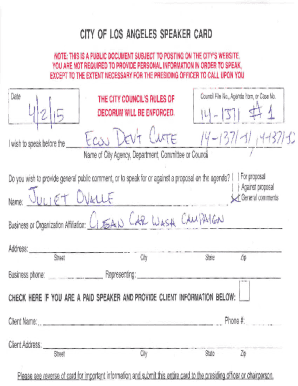 CITY OF LOS ANGELES SPEAKER CARD
NOTE: THIS IS A PUBLIC DOCUMENT SUBJECT TO POSTING ON THE CITY'S WEBSITE.
YOU ARE NOT REQUIRED TO PROVIDE PERSONAL INFORMATION IN ORDER TO SPEAK,
EXCEPT TO THE EXTENT NECESSARY FOR THE PRESIDING OFFICER TO CALL UPON YOU
Date
4/2/15
THE CITY COUNCIL'S RULES OF
DECORUM WILL BE ENFORCED.
Council File No., Agenda Item, or Case No.
14-1371 #1
I wish to speak before the ECON DEVT CMTE 14-1371-S1, 14-1371-S2
Name of City Agency, Department, Committee or Council
Do you wish to provide general public comment, or to speak for or against a proposal on the agenda? ( ) For proposal
( ) Against proposal
(X) General comments
Name: JULIET OVALLE
Business or Organization Affiliation: CLEAN CAR WASH CAMPAIGN
Address:
Street City State Zip
Business phone: Representing:
CHECK HERE IF YOU ARE A PAID SPEAKER AND PROVIDE CLIENT INFORMATION BELOW:
Client Name: Phone #:
Client Address:
Street City State Zip
Please see reverse of card for important information and submit this entire card to the presiding officer or chairperson.